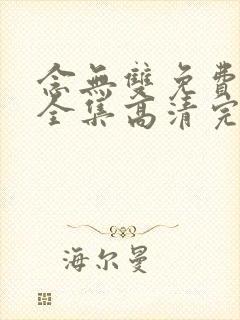 念無雙免費
全集高清完
海尔曼